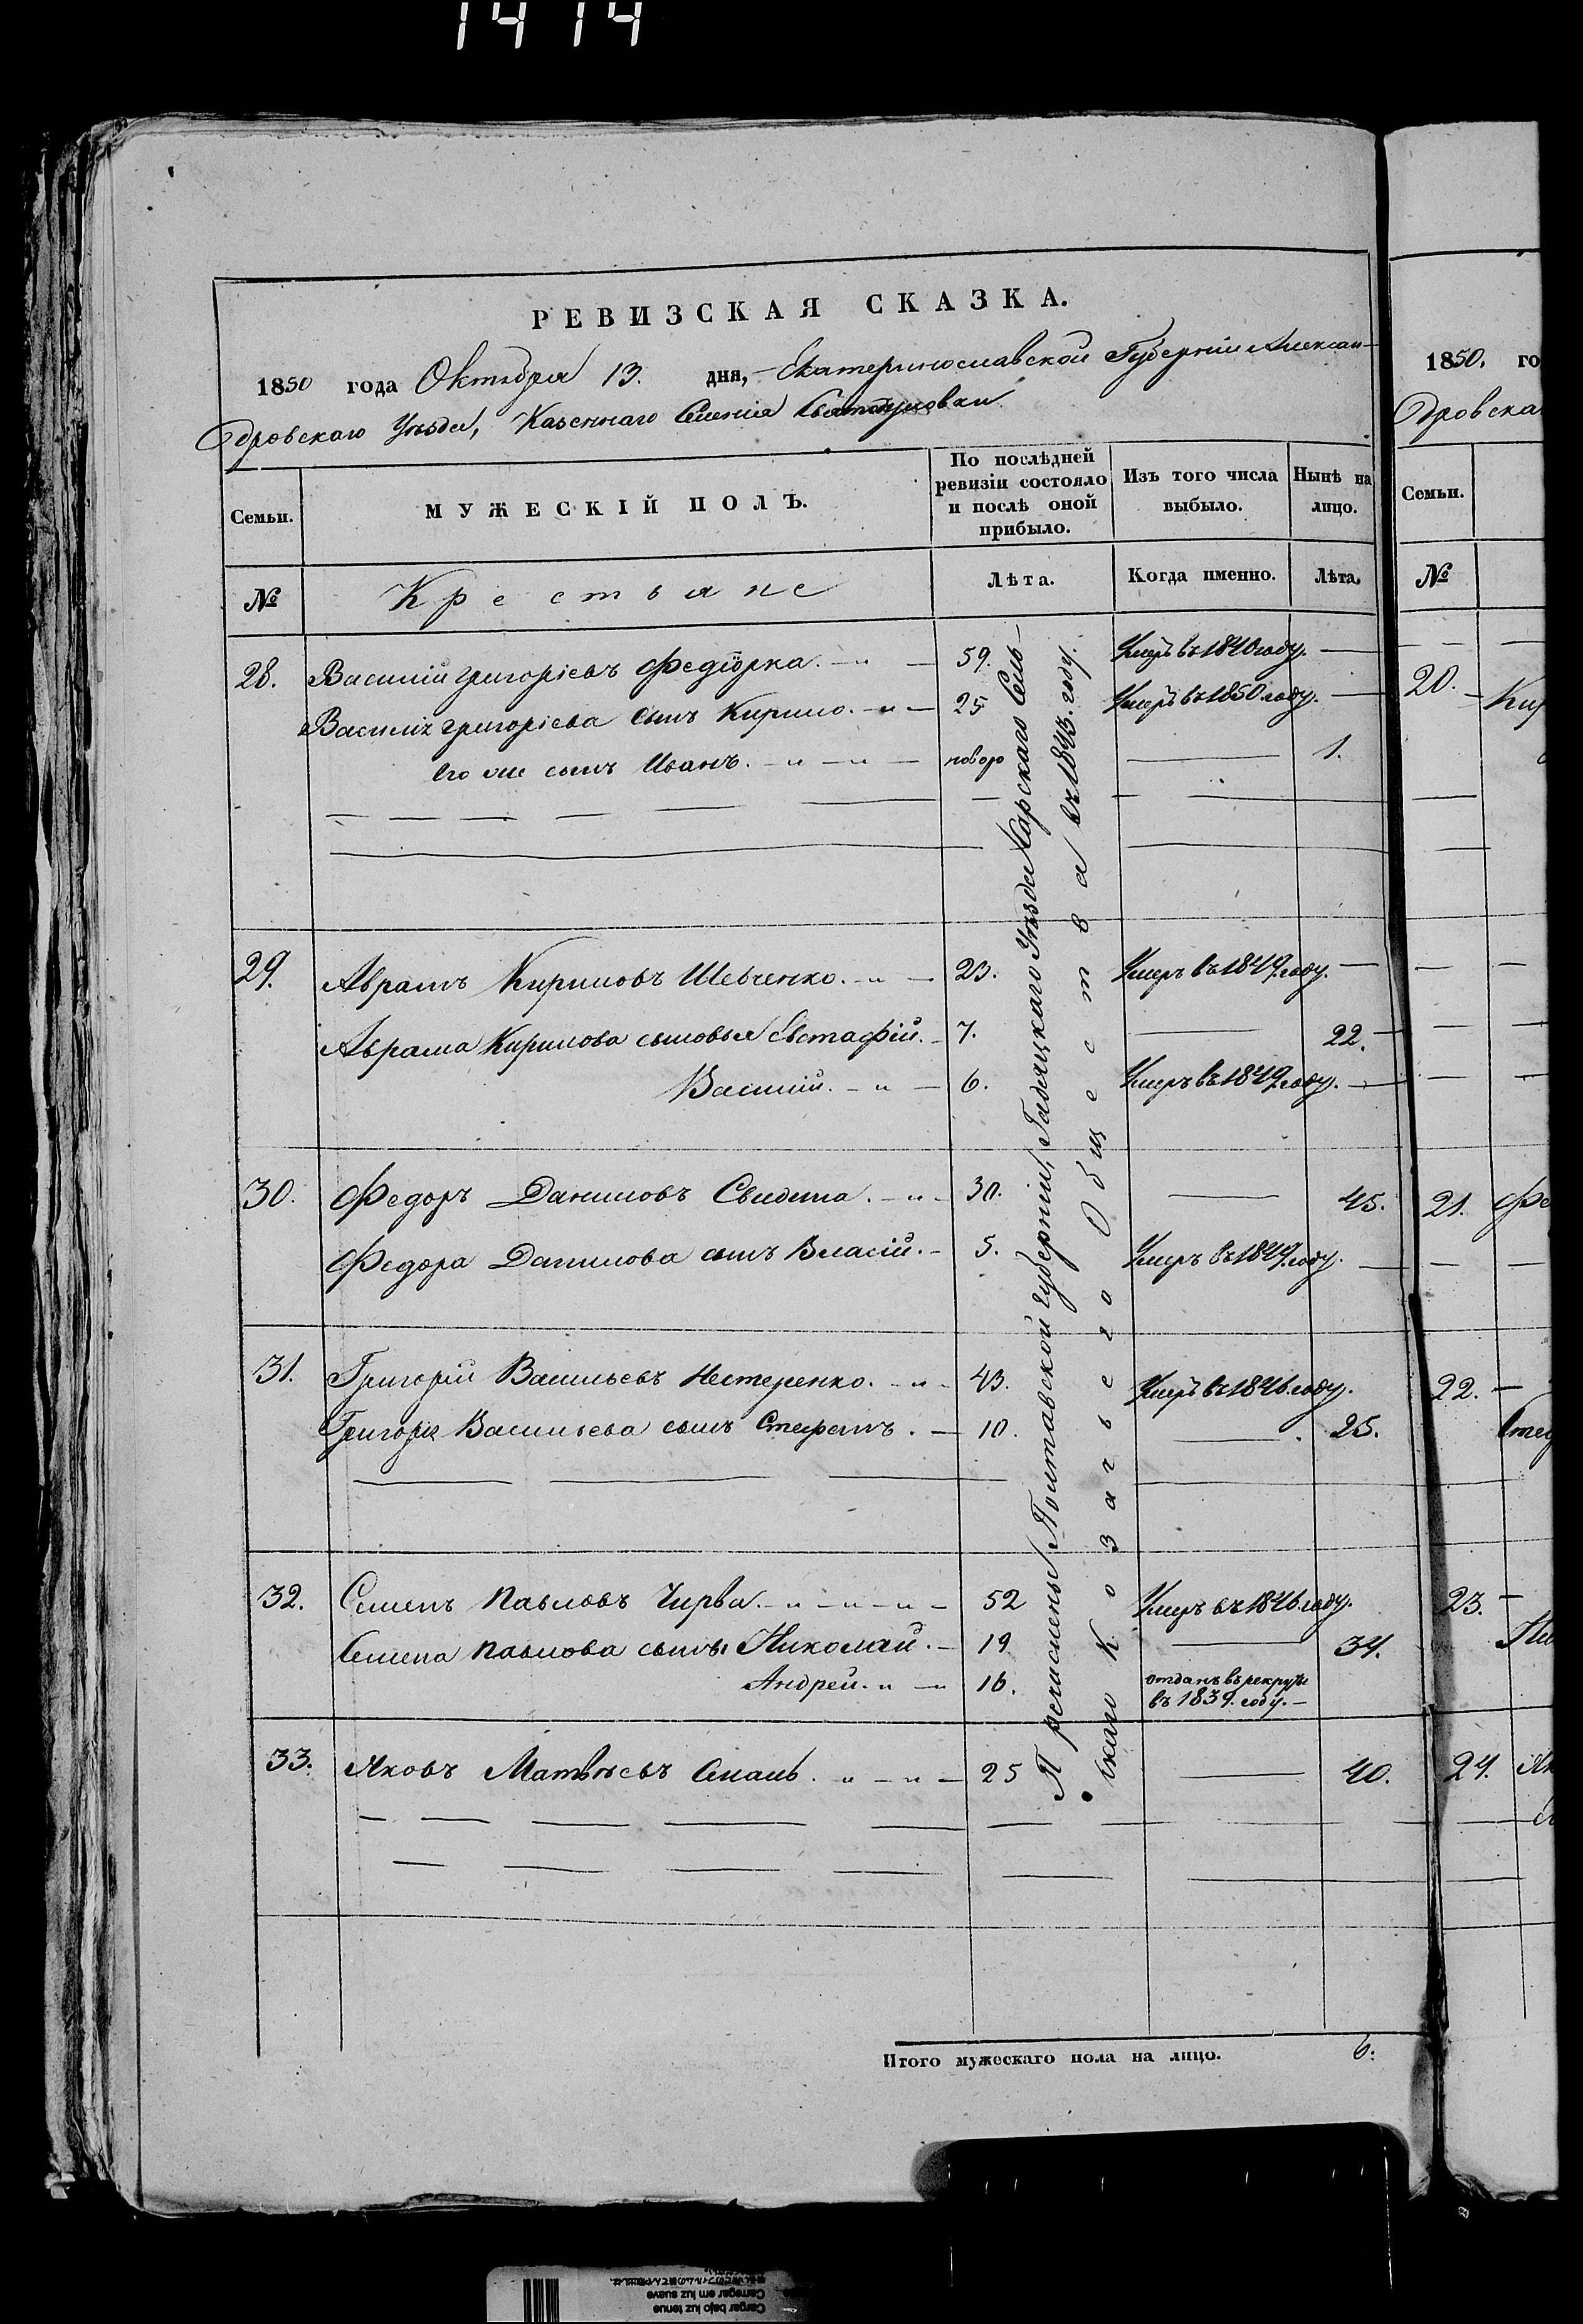 1414
РЕВИЗСКАЯ СКАЗКА.
1850 года Октября 13. дня, Екатеринославской Губерніи Алексан-
дровскаго Уѣзда, Казеннаго Селенія
Семьи.
МУЖЕСКІЙ ПОЛЪ.
По послѣдней ревизіи состояло и послѣ оной прибыло.
Изъ того числа выбыло.
Нынѣ на лицо.
№
Крестьяне
Лѣта.
Когда именно.
Лѣта.
28. Василій Григорієвъ Федіорка. 59. Умеръ въ 1840 году.
Василія Григорієва сынъ Кирило. 25 Умеръ въ 1850 году.
Его же сынъ Иванъ. новоро 1.
29. Аврамъ Кириловъ Шевченко. 23. Умеръ въ 1849 году.
Аврама Кирилова сыновья Евстафій. 7. 22.
Василій. 6. Умеръ въ 1849 году.
30. Федоръ Даниловъ Свидета. 30. 45.
Федора Данилова сынъ Власій. 5. Умеръ въ 1849 году.
31. Григорій Васильевъ Нестеренко. 43. Умеръ въ 1846 году.
Григорія Васильева сынъ Стефанъ. 10. 25.
32. Семенъ Павловъ Чирва. 52 Умеръ въ 1846 году.
Семена Павлова сынъ Николай. 19 34.
Андрей. 16. отданъ въ рекруты
въ 1839. году.
33. Яковъ Матвѣевъ 25 40.
Перечислены Полтавской Губерніи, Гадяцкаго Уѣзда Сель-
скаго Козачьего Общества въ 1843. году.
Итого мужескаго пола на лицо. 6.
1850. го
дровска
Семьи.
№
20. Ки
21. Фе
22.
Стеф
23.
Ни
24. Як
Cargar bajo luz tenue
Carregar em luz suave